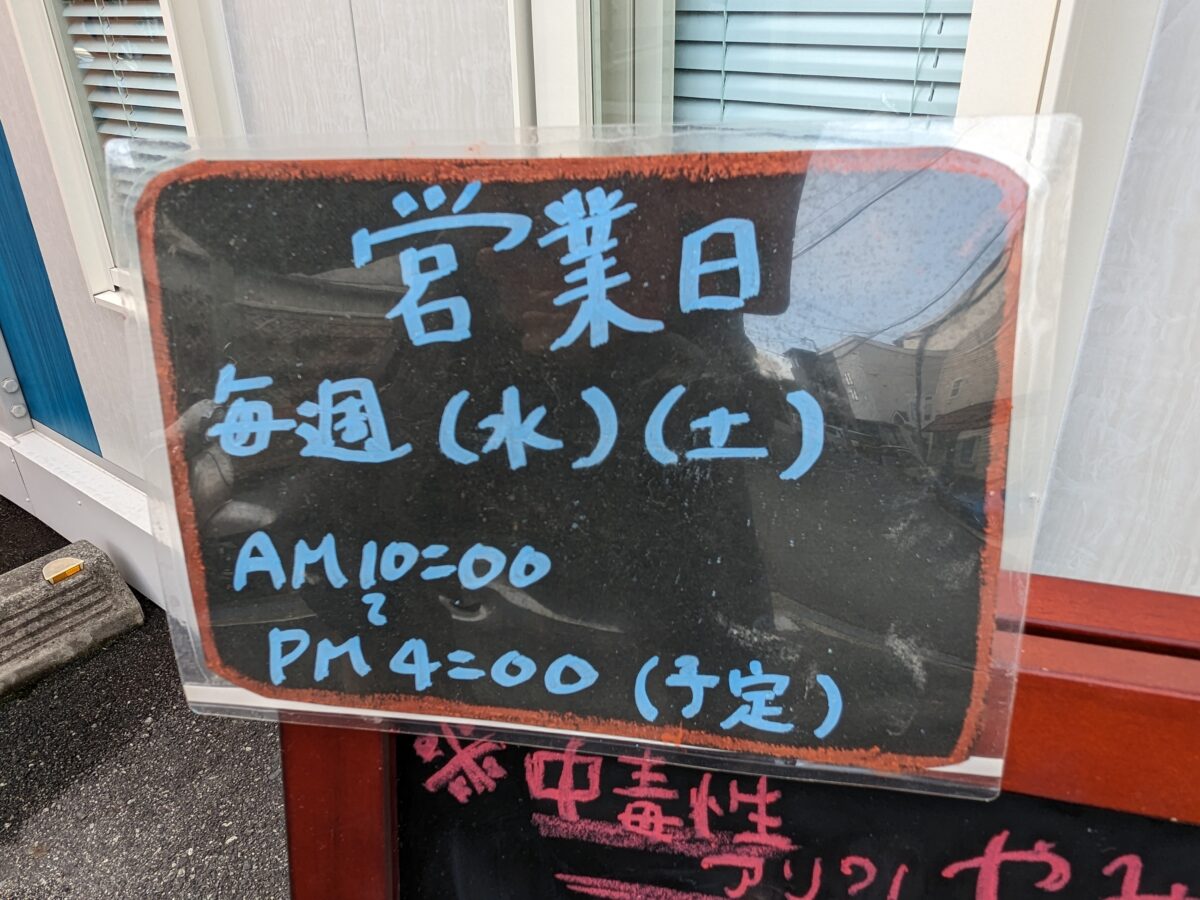 営業日
毎週(水)(土)
AM10=00
〜
PM4=00(予定)
※中毒性
アリ
やみ